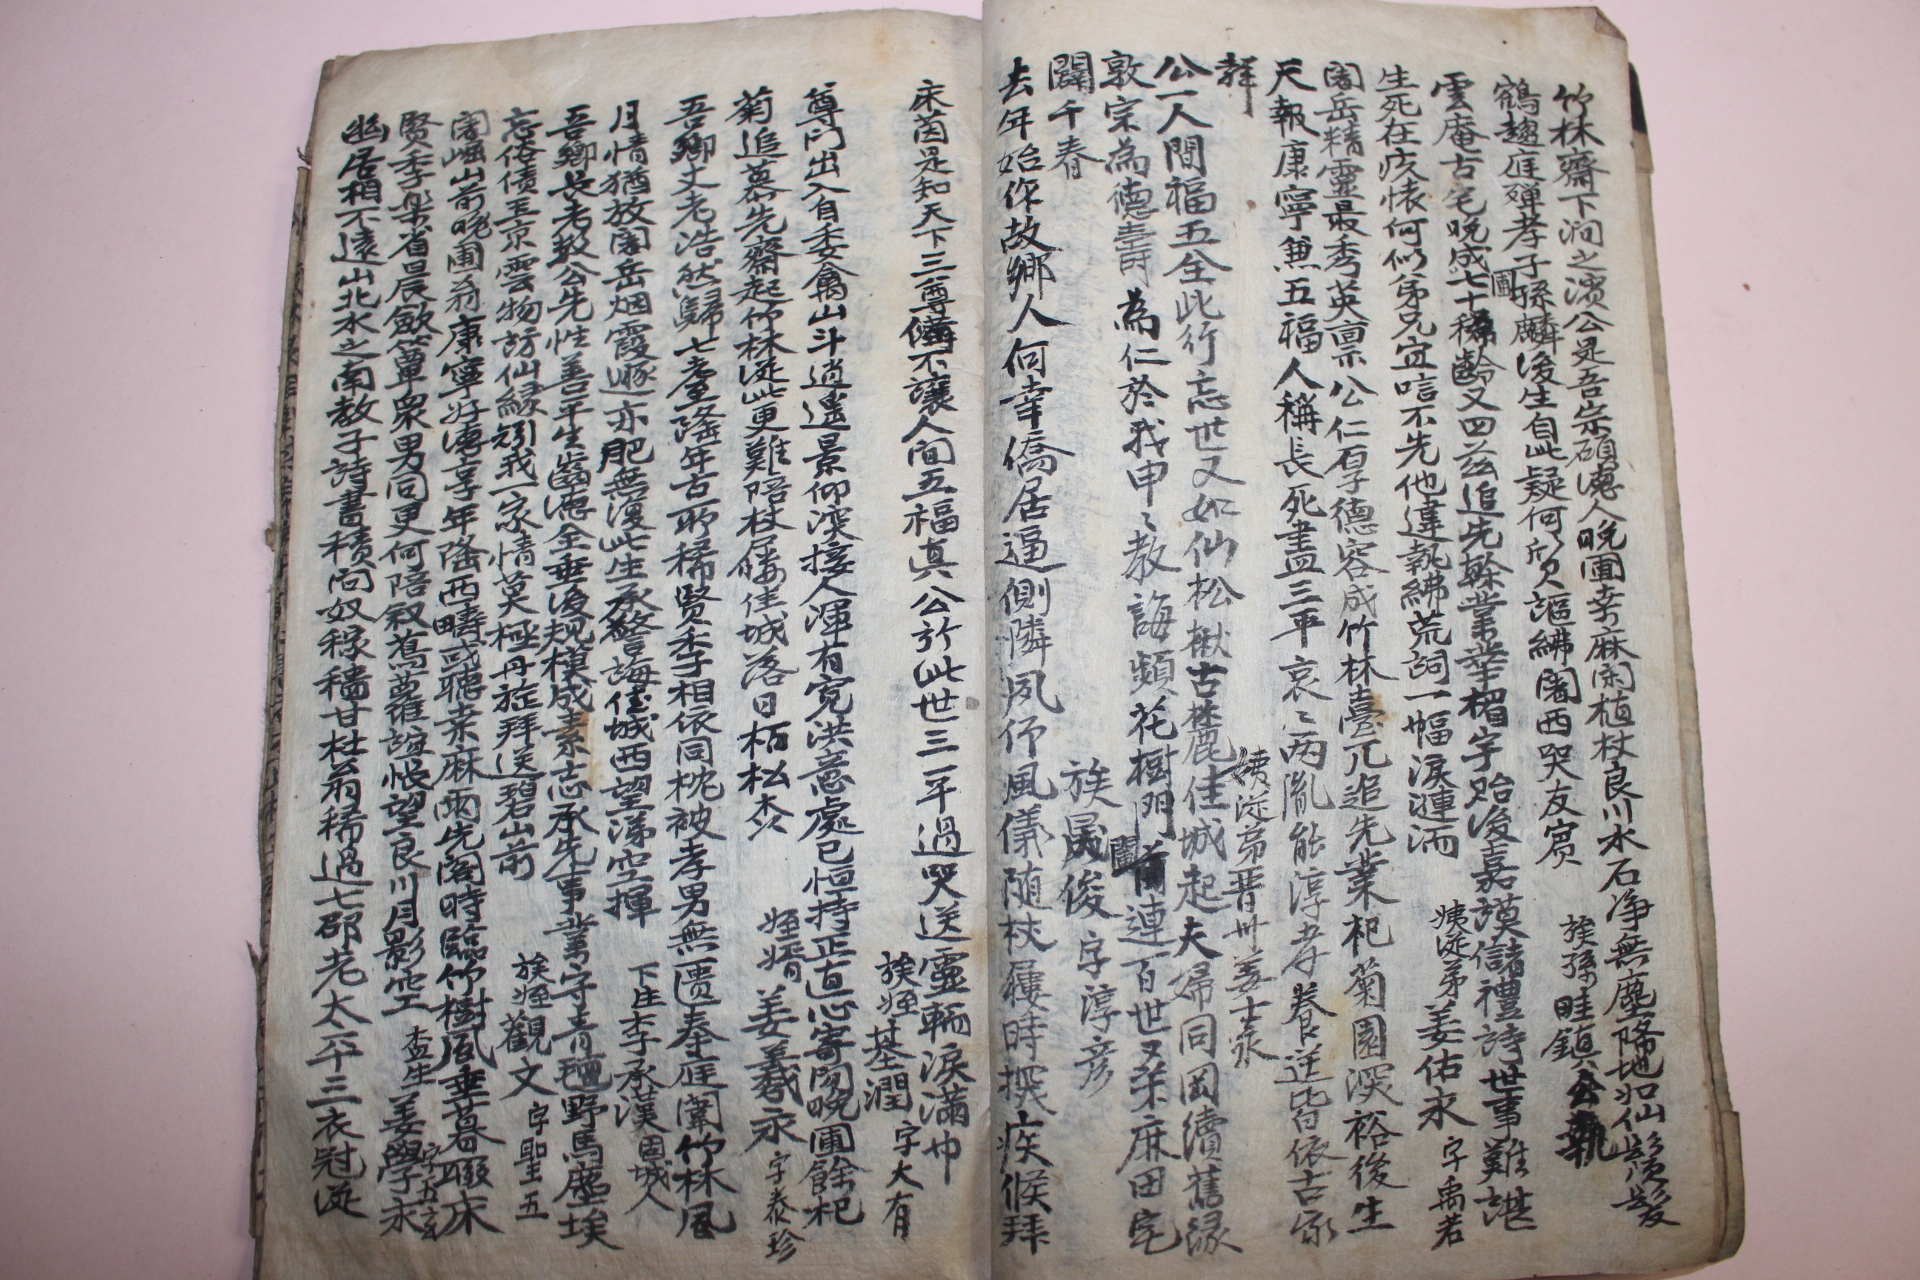 竹林齋下澗之濱公是吾宗碩德人晩圃桒麻閑植杖良川水石淨無塵降地如仙鬚髮
鶴趨庭殫孝子孫麟後生自此疑何質謳紼闍西哭友賓 族孫畦鎭公執
雲庵古宅晩成圃七十稀齡又四玆追先幹業華楣宇貽後嘉謨儲禮詩世事難諶
生死在疚懷何似弟兄宜唁不先他違執紼荒詞一幅淚漣洏 姨從弟姜佑永 字禹若
闍岳精靈最秀英禀公仁厚德容成竹林臺兀追先業祀菊園深裕後生
天報康寧兼五福人稱長死盡三平哀〻兩胤能淳孝眷送皆依古家
聲 姨從弟晋州姜士永
公一人間福五全此行忘世又如仙松楸古麓佳城起夫婦同岡續舊緣
敦宗爲德壽爲仁於我申〻敎誨頻花樹門圃連百世桒麻田宅
闢千春 族晟俊 字淳彦
去年始作故鄕人何幸僑居逼側隣夙仰風儀随杖屨時撰疾候拜
床茵是知天下三尊備不讓人間五福眞公於此世三平過哭送靈輀淚滿巾
族姪基潤 字大有
尊門出入自委禽山斗逍遙景仰深接人渾有寬洪意處己恒持正直心寄圃晩圃餘祀
菊追慕先齋起竹林從此更難陪杖屨佳城落日栢松森 姪壻姜羲永 字泰珍
吾鄕丈老浩然歸七耋隆年古所稀賢季相依同枕被孝男無匱奉庭闈竹林風
月情猶放闍岳烟霞遯亦肥無復此生承警誨佳城西望涕空揮 下庄李承漢 固城人
吾鄕長老敎公先性善平生齒德全垂後規模成素志承先事業守靑氊野馬塵埃
忘俗債玉京雲物訪仙緣矧我一家情莫極丹旌拜送碧山前 族姪觀文 字聖五
闍崛山前晩圃翁康寧好德享年隆西疇或聽桒麻雨先閣時臨竹樹風垂暮聯床
賢季樂省晨歛簞衆男同更何陪叙蔦蘿誼悵望良川月影空 查生姜學永 字五玄
幽居相不遠山北水之南敎子詩書積向奴稼穡甘杜翁稀過七邵老太平三衣冠從